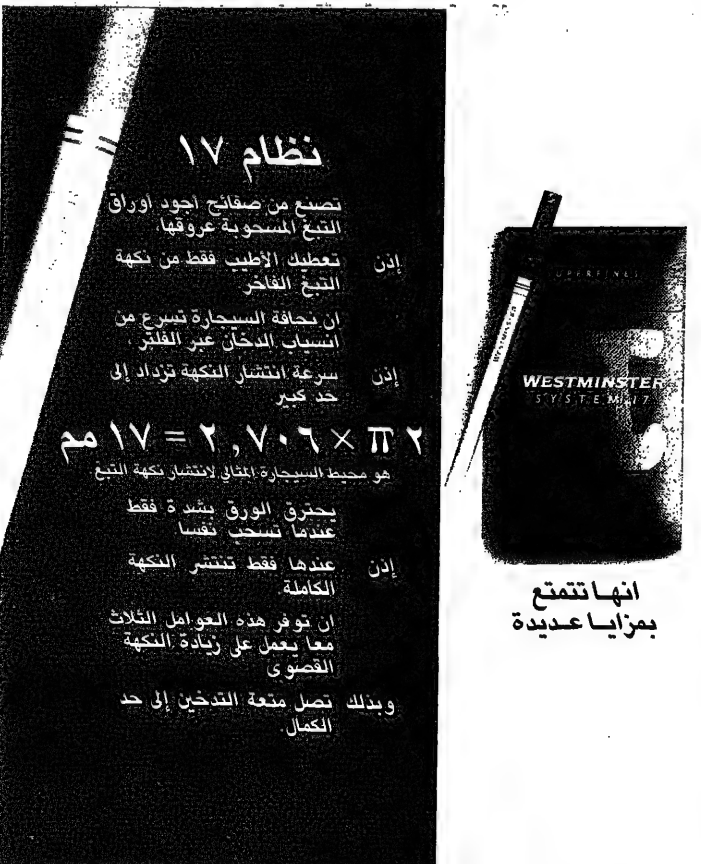 نظام ١٧
تصنع من صفائح اجود أوراق
التبغ المسحوبة عروقها.
إذن تعطيك الأطيب فقط من نكهة
التبغ الفاخر
ان نحافة السيجارة تسرع من
انسياب الدخان عبر الفلتر .
إذن سرعة انتشار النكهة تزداد إلى
حد كبير
٢ π × ٢,٧٠٦ = ١٧ مم
هو محيط السيجارة المثالي لانتشار نكهة التبغ
يحترق الورق بشدة فقط
عندما تسحب نفسا.
إذن عندها فقط تنتشر النكهة
الكاملة.
ان توفر هذه العوامل الثلاث
معا يعمل على زيادة النكهة
القصوى
وبذلك تصل متعة التدخين إلى حد
الكمال.
SUPERFINES
WESTMINSTER
WESTMINSTER
SYSTEM 17
انها تتمتع
بمزايا عديدة